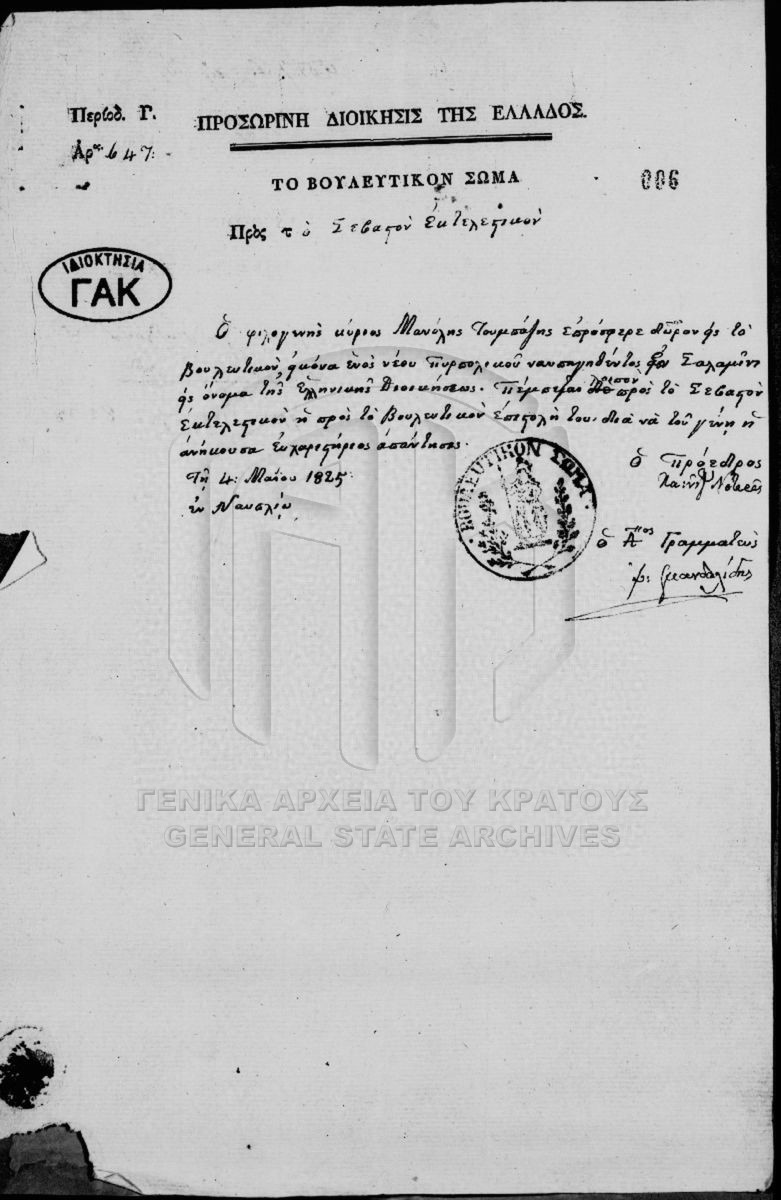 Περίοδ. Γ.
Ἀρ. 647.
ΠΡΟΣΩΡΙΝΗ ΔΙΟΙΚΗΣΙΣ ΤΗΣ ΕΛΛΑΔΟΣ.
ΤΟ ΒΟΥΛΕΥΤΙΚΟΝ ΣΩΜΑ
006
Πρὸς τὸ Σεβαστὸν Ἐκτελεστικὸν
ΙΔΙΟΚΤΗΣΙΑ
ΓΑΚ
Ὁ φιλογενὴς κύριος Μανόλης Τουμπάζης ἐπρόσφερε δῶρον εἰς τὸ
Βουλευτικὸν, εἰκόνα ἑνὸς νέου πυρπολικοῦ ναυπηγηθέντος Σαλαμῖνι
εἰς ὄνομα τῆς Ἑλληνικῆς Διοικήσεως. Πέμπεται λοιπὸν πρὸς τὸ Σεβαστὸν
Ἐκτελεστικὸν ἡ πρὸς τὸ Βουλευτικὸν ἐπιστολή του, διὰ νὰ τοῦ γένῃ ἡ
ἀνήκουσα εὐχαριστήριος ἀπάντησις.
Τῇ 4: Μαΐου 1825
ἐν Ναυπλίῳ
ΒΟΥΛΕΥΤΙΚΟΝ ΣΩΜΑ
ὁ Πρόεδρος
Νοταρᾶς
ὁ Αʹ Γραμματεὺς
ΓΕΝΙΚΑ ΑΡΧΕΙΑ ΤΟΥ ΚΡΑΤΟΥΣ
GENERAL STATE ARCHIVES